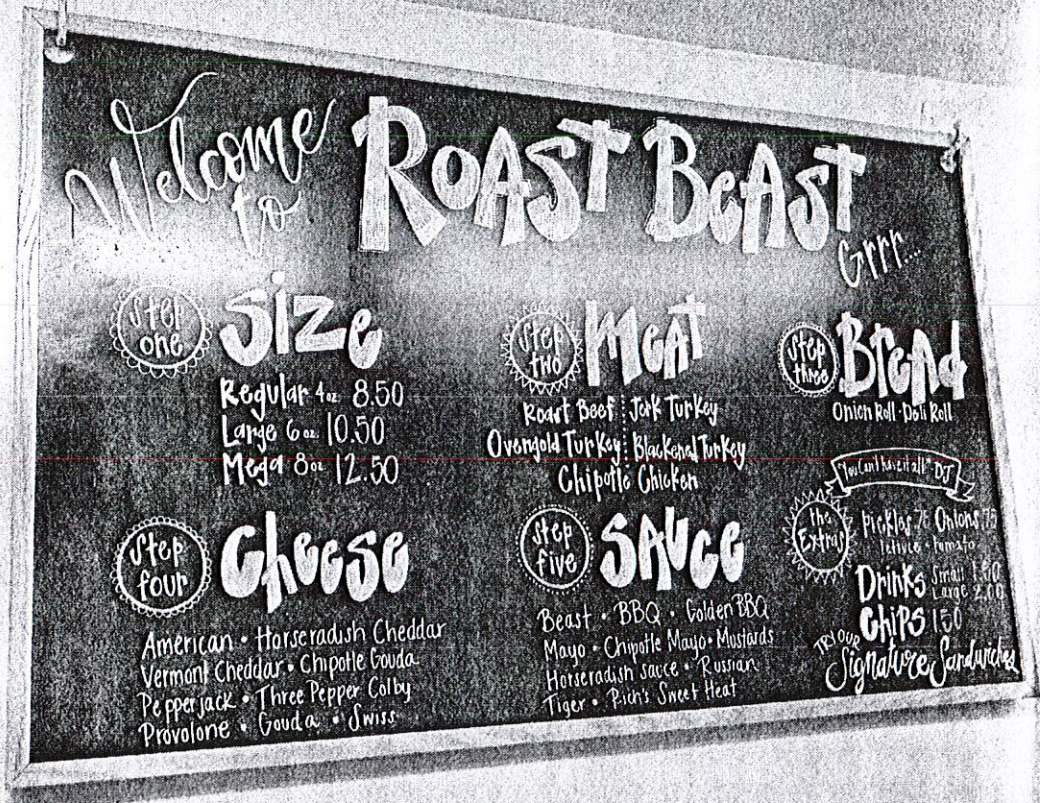 Welcome
to
ROAST BEAST
Grrr...
Step
one
Size
Regular 4oz. 8.50
Large 6oz. 10.50
Mega 8oz. 12.50
Step
two
Meat
Roast Beef Jerk Turkey
Ovengold Turkey Blackened Turkey
Chipotle Chicken
Step
three
Bread
Onion Roll • Deli Roll
Step
four
Cheese
American • Horseradish Cheddar
Vermont Cheddar • Chipotle Gouda
Pepperjack • Three Pepper Colby
Provolone • Gouda • Swiss
Step
five
Sauce
Beast • BBQ • Golden BBQ
Mayo • Chipotle Mayo • Mustards
Horseradish Sauce • Russian
Tiger • Rich's Sweet Heat
"You Can't have it all" DJ
The
Extras
Pickles .75 Onions .75
letuce • tomato
Drinks Small
Large 2.00
Chips 1.50
TRY OUR
Signature Sandwiches